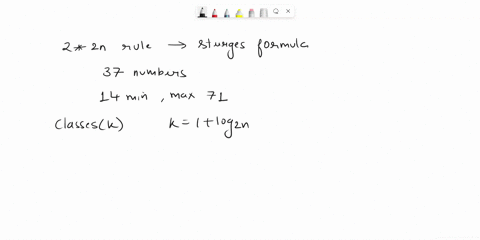 2*2n rule → sturges formula
37 numbers
14 min, max 71
Classes(k) k = 1+log2n